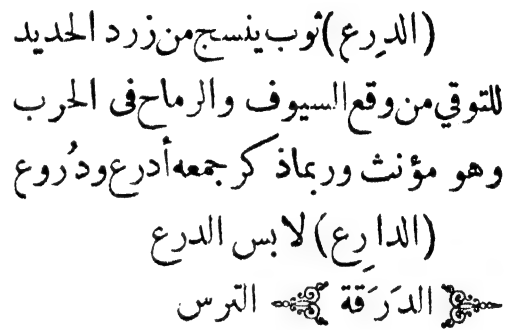 (الدِرع) ثوب ينسج من زرد الحديد
للتوقي من وقع السيوف والرماح فى الحرب
وهو مؤنث وربما ذكر جمعه أدرع ودُروع
(الدارِع) لابس الدرع
﴿ الدَرَقة ﴾ الترس